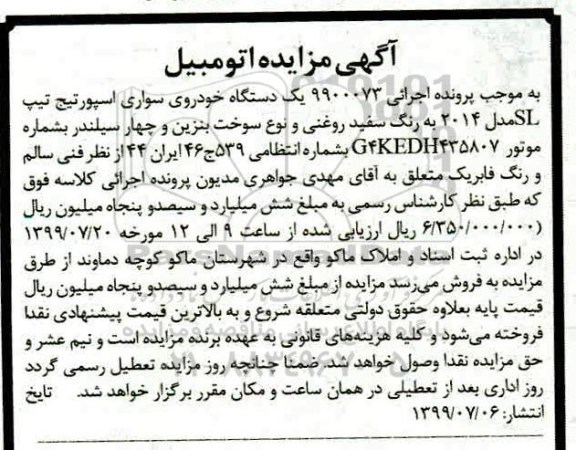 آگهی مزایده اتومبیل
به موجب پرونده اجرائی ۹۹۰۰۰۷۳ یک دستگاه خودروی سواری اسپورتیج تیپ
SLمدل ۲۰۱۴ به رنگ سفید روغنی و نوع سوخت بنزین و چهار سیلندر بشماره
موتور G۴KEDH۴۳۵۸۰۷ بشماره انتظامی ۵۳۹ج۴۶ ایران ۴۴ از نظر فنی سالم
و رنگ فابریک متعلق به آقای مهدی جواهری مدیون پرونده اجرائی کلاسه فوق
که طبق نظر کارشناس رسمی به مبلغ شش میلیارد و سیصدو پنجاه میلیون ریال
(۶/۳۵۰/۰۰۰/۰۰۰ ریال ارزیابی شده از ساعت ۹ الی ۱۲ مورخه ۱۳۹۹/۰۷/۲۰
در اداره ثبت اسناد و املاک ماکو واقع در شهرستان ماکو کوچه دماوند از طرق
مزایده به فروش می‌رسد مزایده از مبلغ شش میلیارد و سیصدو پنجاه میلیون ریال
قیمت پایه بعلاوه حقوق دولتی متعلقه شروع و به بالاترین قیمت پیشنهادی نقدا
فروخته می‌شود و کلیه هزینه‌های قانونی به عهده برنده مزایده است و نیم عشر و
حق مزایده نقدا وصول خواهد شد. ضمنا چنانچه روز مزایده تعطیل رسمی گردد
روز اداری بعد از تعطیلی در همان ساعت و مکان مقرر برگزار خواهد شد. تایخ
انتشار: ۱۳۹۹/۰۷/۰۶